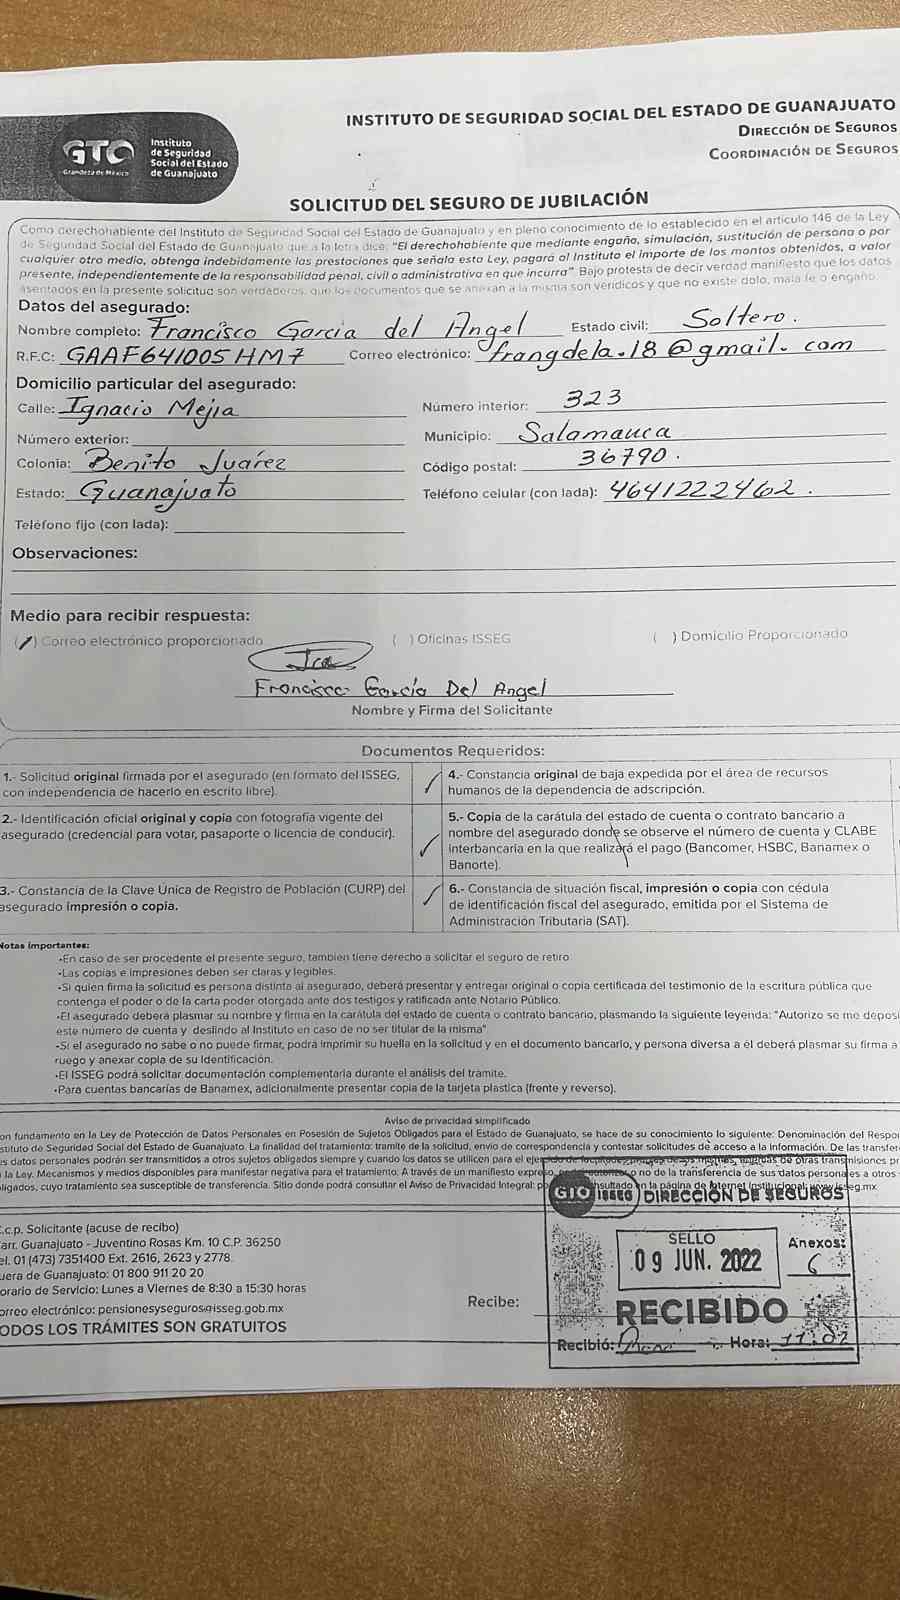 INSTITUTO DE SEGURIDAD SOCIAL DEL ESTADO DE GUANAJUATO
DIRECCIÓN DE SEGUROS
COORDINACIÓN DE SEGUROS
GTO
Grandeza de México
Instituto
de Seguridad
Social del Estado
de Guanajuato
SOLICITUD DEL SEGURO DE JUBILACIÓN
Como derechohabiente del Instituto de Seguridad Social del Estado de Guanajuato y en pleno conocimiento de lo establecido en el artículo 146 de la Ley
de Seguridad Social del Estado de Guanajuato que a la letra dice: "El derechohabiente que mediante engaño, simulación, sustitución de persona o por
cualquier otro medio, obtenga indebidamente las prestaciones que señala esta Ley, pagará al Instituto el importe de los montos obtenidos, a valor
presente, independientemente de la responsabilidad penal, civil o administrativa en que incurra" Bajo protesta de decir verdad manifiesto que los datos
asentados en la presente solicitud son verdaderos, que los documentos que se anexan a la misma son verídicos y que no existe dolo, mala fe o engaño.
Datos del asegurado:
Nombre completo: Francisco García del Angel Estado civil: Soltero.
R.F.C: GAAF641005HM7 Correo electrónico: frangdela.18@gmail.com
Domicilio particular del asegurado:
Calle: Ignacio Mejia Número interior: 323
Número exterior: Municipio: Salamanca
Colonia: Benito Juárez Código postal: 36790.
Estado: Guanajuato Teléfono celular (con lada): 4641222462.
Teléfono fijo (con lada):
Observaciones:
Medio para recibir respuesta:
(✓) Correo electrónico proporcionado ( ) Oficinas ISSEG ( ) Domicilio Proporcionado
Francisco García Del Angel
Nombre y Firma del Solicitante
Documentos Requeridos:
1.- Solicitud original firmada por el asegurado (en formato del ISSEG,
con independencia de hacerlo en escrito libre).
4.- Constancia original de baja expedida por el área de recursos
humanos de la dependencia de adscripción.
2.- Identificación oficial original y copia con fotografía vigente del
asegurado (credencial para votar, pasaporte o licencia de conducir).
5.- Copia de la carátula del estado de cuenta o contrato bancario a
nombre del asegurado donde se observe el número de cuenta y CLABE
Interbancaria en la que realizará el pago (Bancomer, HSBC, Banamex o
Banorte).
3.- Constancia de la Clave Única de Registro de Población (CURP) del
asegurado impresión o copia.
6.- Constancia de situación fiscal, impresión o copia con cédula
de identificación fiscal del asegurado, emitida por el Sistema de
Administración Tributaria (SAT).
Notas importantes:
•En caso de ser procedente el presente seguro, tambien tiene derecho a solicitar el seguro de retiro.
•Las copias e impresiones deben ser claras y legibles.
•Si quien firma la solicitud es persona distinta al asegurado, deberá presentar y entregar original o copia certificada del testimonio de la escritura pública que
contenga el poder o de la carta poder otorgada ante dos testigos y ratificada ante Notario Público.
•El asegurado deberá plasmar su nombre y firma en la carátula del estado de cuenta o contrato bancario, plasmando la siguiente leyenda: "Autorizo se me deposi
este número de cuenta y deslindo al Instituto en caso de no ser titular de la misma"
•Si el asegurado no sabe o no puede firmar, podrá imprimir su huella en la solicitud y en el documento bancario, y persona diversa a él deberá plasmar su firma a
ruego y anexar copia de su Identificación.
•El ISSEG podrá solicitar documentación complementaria durante el análisis del trámite.
•Para cuentas bancarias de Banamex, adicionalmente presentar copia de la tarjeta plastica (frente y reverso).
Aviso de privacidad simplificado
on fundamento en la Ley de Protección de Datos Personales en Posesión de Sujetos Obligados para el Estado de Guanajuato, se hace de su conocimiento lo siguiente: Denominación del Respon
stituto de Seguridad Social del Estado de Guanajuato. La finalidad del tratamiento: tramite de la solicitud, envío de correspondencia y contestar solicitudes de acceso a la Información. De las transfer
s datos personales podrán ser transmitidos a otros sujetos obligados siempre y cuando los datos se utilicen para el de otras transmisiones pr
la Ley. Mecanismos y medios disponibles para manifestar negativa para el tratamiento: A través de un manifiesto expreso, no de la transferencia de sus datos personales a otros
ligados, cuyo tratamiento sea susceptible de transferencia. Sitio donde podrá consultar el Aviso de Privacidad Integral: en la página de Internet Institucional: www.isseg.mx
GTO ISSEG DIRECCIÓN DE SEGUROS
SELLO
09 JUN. 2022
Anexos: 6
RECIBIDO
Recibió: Hora: 11:07
C.c.p. Solicitante (acuse de recibo)
arr. Guanajuato - Juventino Rosas Km. 10 C.P. 36250
el. 01 (473) 7351400 Ext. 2616, 2623 y 2778.
uera de Guanajuato: 01 800 911 20 20
orario de Servicio: Lunes a Viernes de 8:30 a 15:30 horas
orreo electrónico: pensionesyseguros@isseg.gob.mx
ODOS LOS TRÁMITES SON GRATUITOS
Recibe: